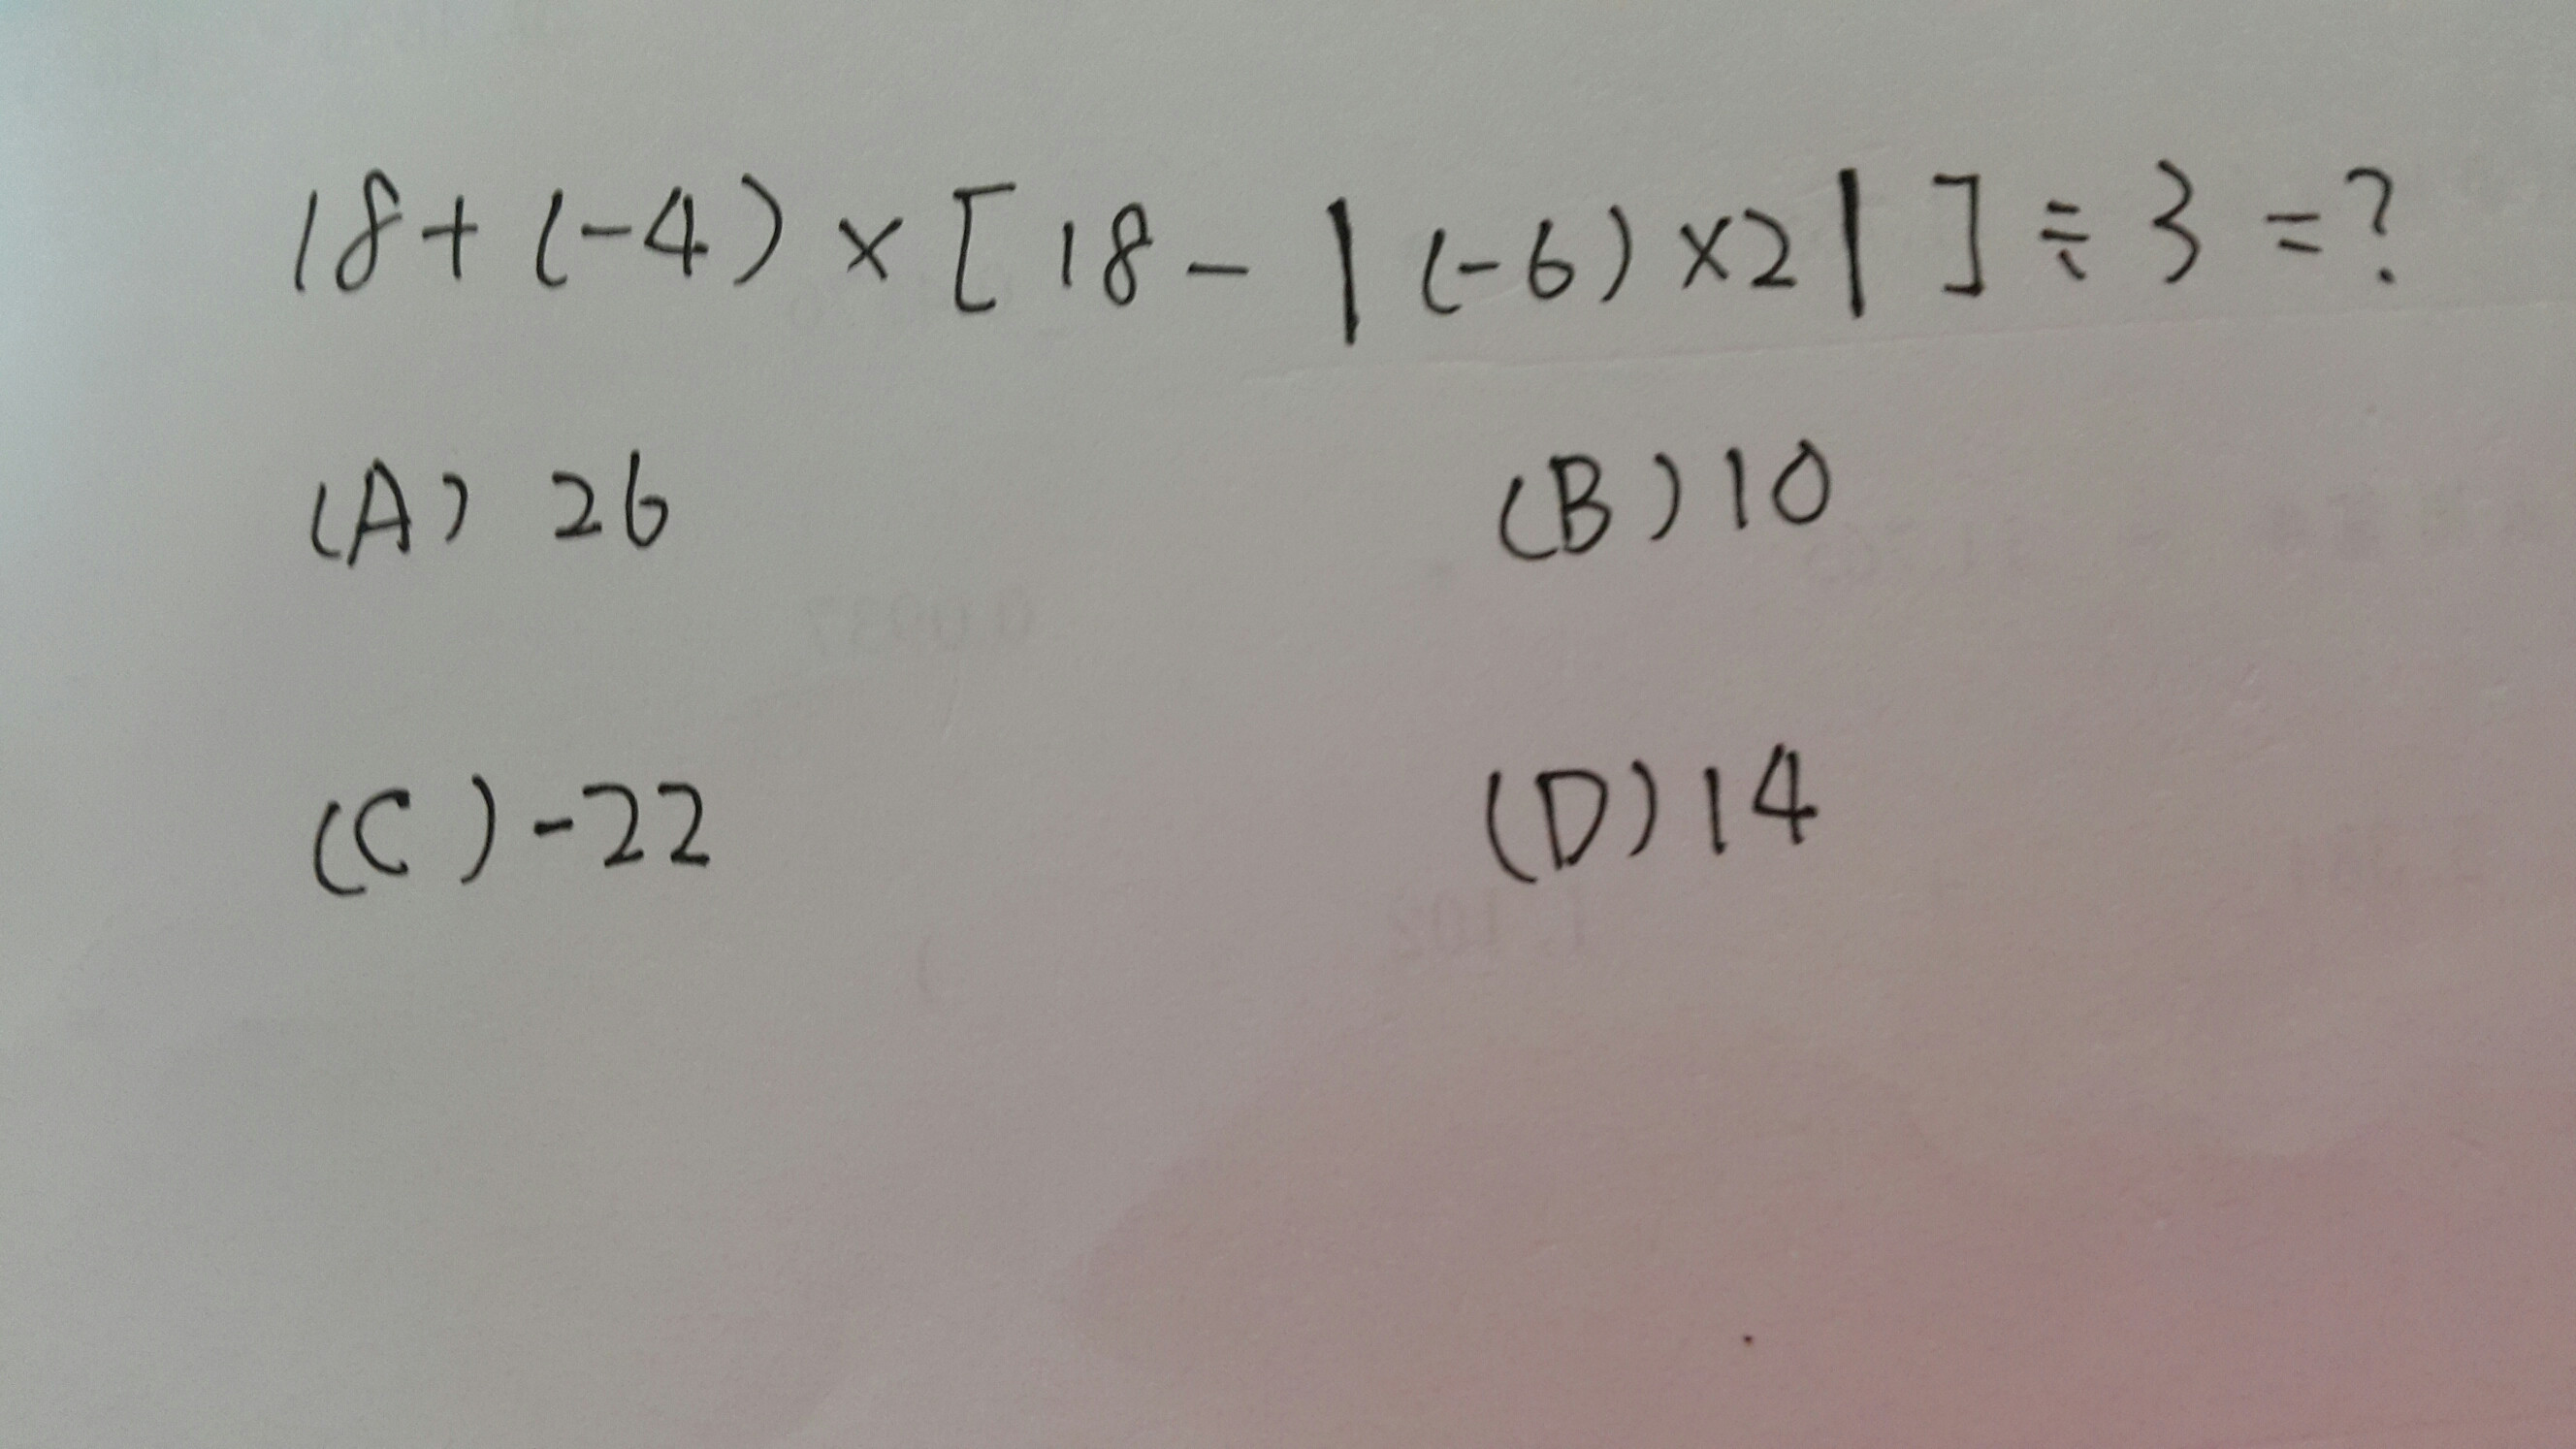 18+(-4)×[18-|(-6)×2|]÷3=?
(A) 26 (B) 10
(C) -22 (D) 14